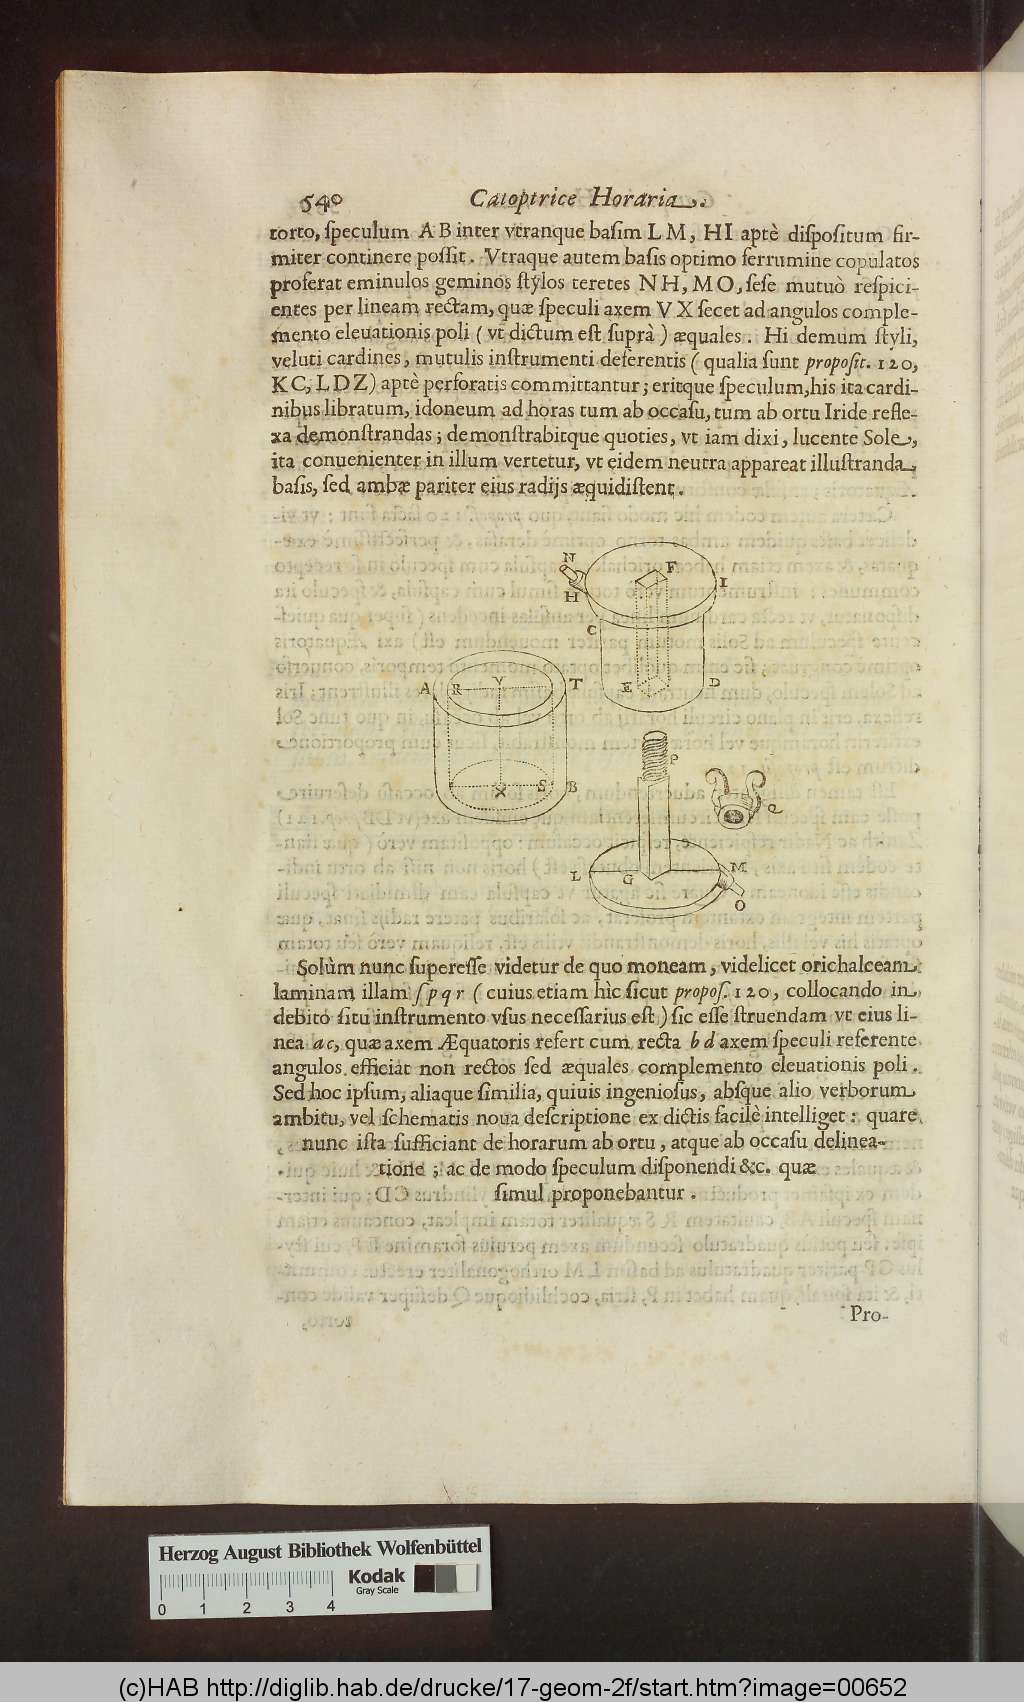 540 Catoptrice Horaria.
torto, ſpeculum A B inter vtranque baſim L M, HI aptè diſpoſitum fir-
miter continere poſſit. Vtraque autem baſis optimo ferrumine copulatos
proferat eminulos geminos ſtylos teretes N H, M O, ſeſe mutuò reſpici-
entes per lineam rectam, quæ ſpeculi axem V X ſecet ad angulos comple-
mento eleuationis poli ( vt dictum eſt ſuprà ) æquales. Hi demum ſtyli,
veluti cardines, mutulis inſtrumenti deferentis ( qualia ſunt propoſit. 120,
K C, L D Z) aptè perforatis committantur; eritque ſpeculum, his ita cardi-
nibus libratum, idoneum ad horas tum ab occaſu, tum ab ortu Iride refle-
xa demonſtrandas; demonſtrabitque quoties, vt iam dixi, lucente Sole,
ita conuenienter in illum vertetur, vt eidem neutra appareat illuſtranda
baſis, ſed ambæ pariter eius radijs æquidiſtent.
N
F
H
I
C
E
D
A
R
V
T
S
X
B
P
Q
L
G
M
O
Solùm nunc ſupereſſe videtur de quo moneam, videlicet orichalceam
laminam illam ſ p q r ( cuius etiam hìc ſicut propoſ. 120, collocando in
debito ſitu inſtrumento vſus neceſſarius eſt ) ſic eſſe ſtruendam vt eius li-
nea a c, quæ axem Æquatoris refert cum recta b d axem ſpeculi referente
angulos efficiat non rectos ſed æquales complemento eleuationis poli.
Sed hoc ipſum, aliaque ſimilia, quiuis ingenioſus, abſque alio verborum
ambitu, vel ſchematis noua deſcriptione ex dictis facilè intelliget: quare
nunc iſta ſufficiant de horarum ab ortu, atque ab occaſu delinea-
tione ; ac de modo ſpeculum diſponendi &c. quæ
ſimul proponebantur.
Pro-
Herzog August Bibliothek Wolfenbüttel
Kodak
Gray Scale
0 1 2 3 4
(c)HAB http://diglib.hab.de/drucke/17-geom-2f/start.htm?image=00652